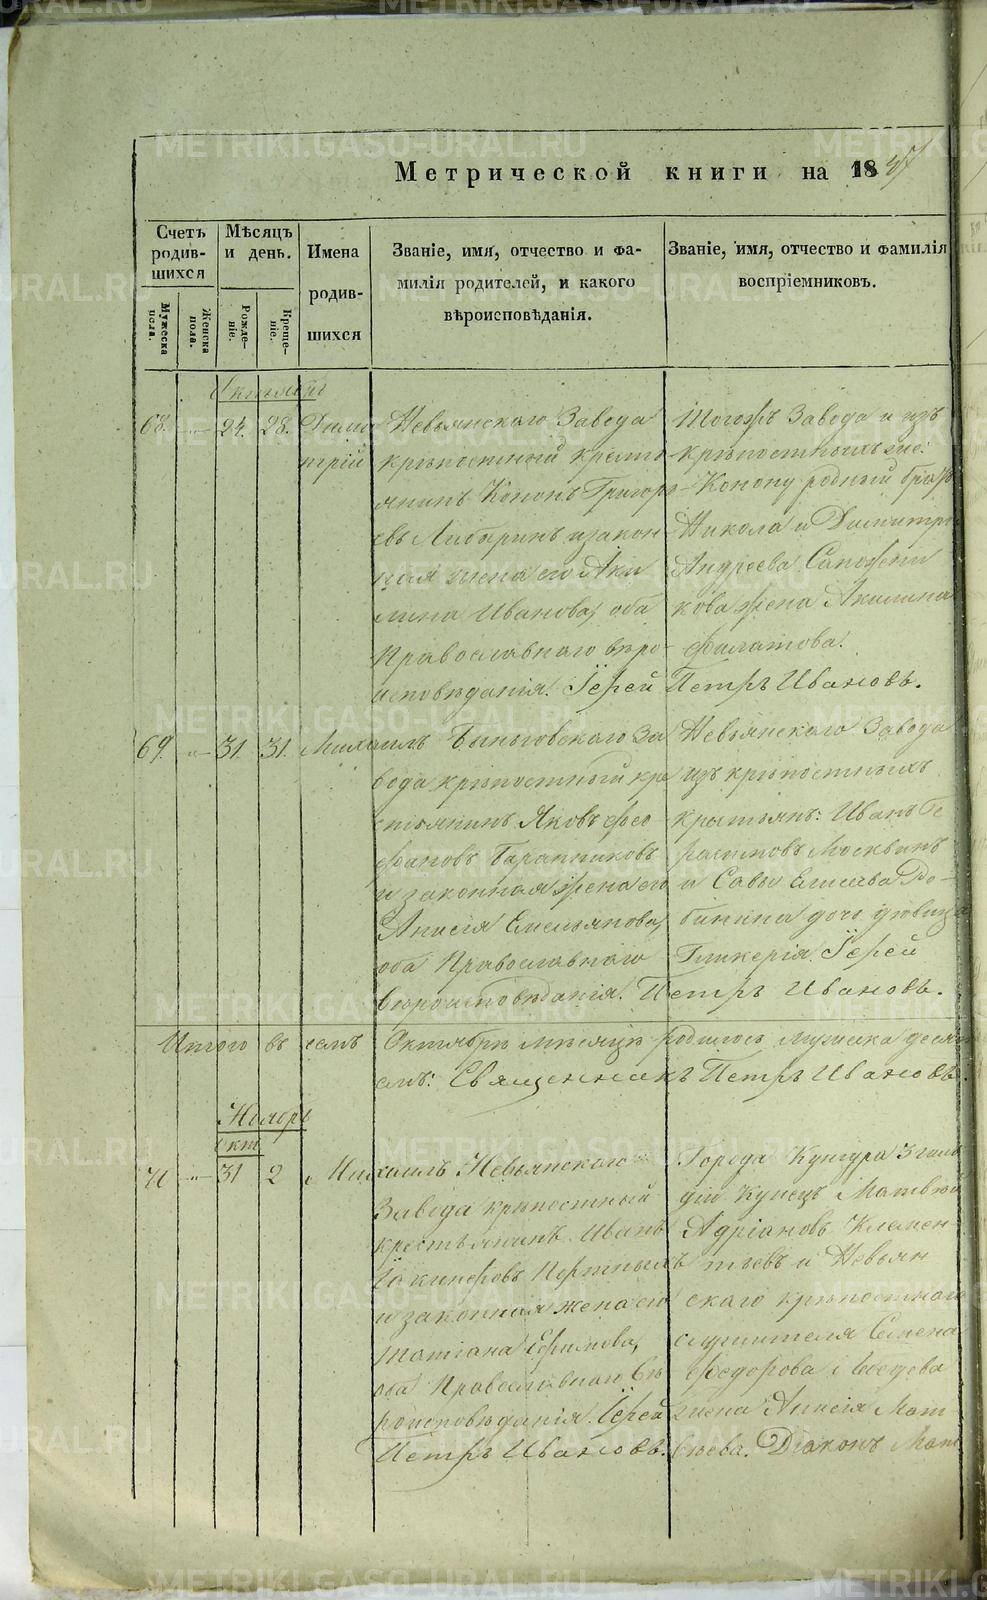 Метрической книги на 1847
Счетъ родив-шихся
Мѣсяцъ и день.
Имена родив-шихся
Званіе, имя, отчество и фа-
милія родителей, и какого
вѣроисповѣданія.
Званіе, имя, отчество и фамилія
воспріемниковъ.
Мужеска пола.
Женска пола.
Рожде-ніе.
Креще-ніе.
Октябрь
68. " 24. 28. Дими
трій
Невьянскаго Завода
крѣпостный кресть
янинъ Кононъ Григорь
евъ и закон
ная жена его Аки
лина Иванова, оба
Православнаго вѣро-
исповѣданія. Іерей
Тогожъ Завода и изъ
крѣпостныхъ же:
Конону родный братъ
Никола и Димитрія
Андреева Сапожни
кова жена Акилина
Филатова.
Петръ Ивановъ.
69. " 31. 31. Михаилъ
Быньговскаго За
вода крѣпостный кре
стьянинъ Яковъ Фео
фановъ Баранниковъ
и законная жена его
Анисія Емельянова,
оба Православнаго
вѣроисповѣданія.
Невьянскаго Завода
изъ крѣпостныхъ
крестьянъ: Иванъ Ге
расимовъ Москвинъ
и Савы Елисѣева Бо-
бинина дочь дѣвица
Гликерія. Іерей
Петръ Ивановъ.
Итого въ семъ Октябрѣ мѣсяцѣ родилось мужеска деся
Священникъ Петръ Ивановъ.
Ноябрь
Окт
71 " 31 2 Михаилъ
Невьянскаго
Завода крѣпостный
крестьянинъ Иванъ
Іакинфовъ Портныхъ
и законная жена его
Татіана Ефимова,
оба Православнаго вѣ
роисповѣданія. Іерей
Петръ Ивановъ.
Города Кунгура 3 гиль
діи Купецъ Матвѣй
Адріановъ Клемен-
тьевъ и Невьян
скаго крѣпостнаго
служителя Семена
Федорова
жена Анисія Мат
вѣева. Діаконъ Мат
METRIKI.GASO-URAL.RU